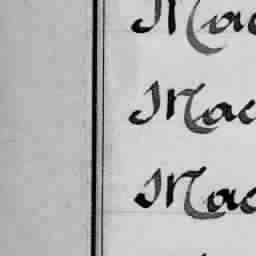 Mac
Mac
Mac